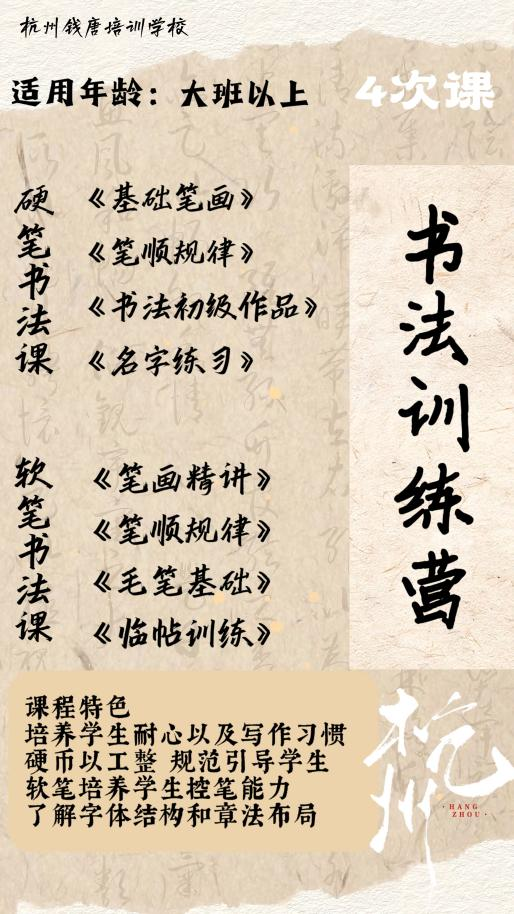 杭州钱唐培训学校
适用年龄：大班以上
4次课
书法训练营
硬笔书法课
《基础笔画》
《笔顺规律》
《书法初级作品》
《名字练习》
软笔书法课
《笔画精讲》
《笔顺规律》
《毛笔基础》
《临帖训练》
课程特色
培养学生耐心以及写作习惯
硬币以工整 规范引导学生
软笔培养学生控笔能力
了解字体结构和章法布局
杭州
·HANG
ZHOU·